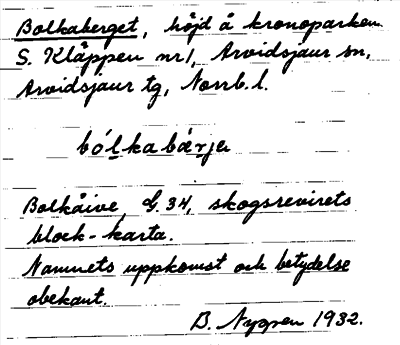 Bolkaberget, höjd å kronoparken
S. Kläppen nr 1, Arvidsjaur sn,
Arvidsjaur tg, Norrb. l.
bólkabárje
Bolkåive G. 34, skogsrevirets
block-karta.
Namnets uppkomst och betydelse
obekant.
B. Nygren 1932.